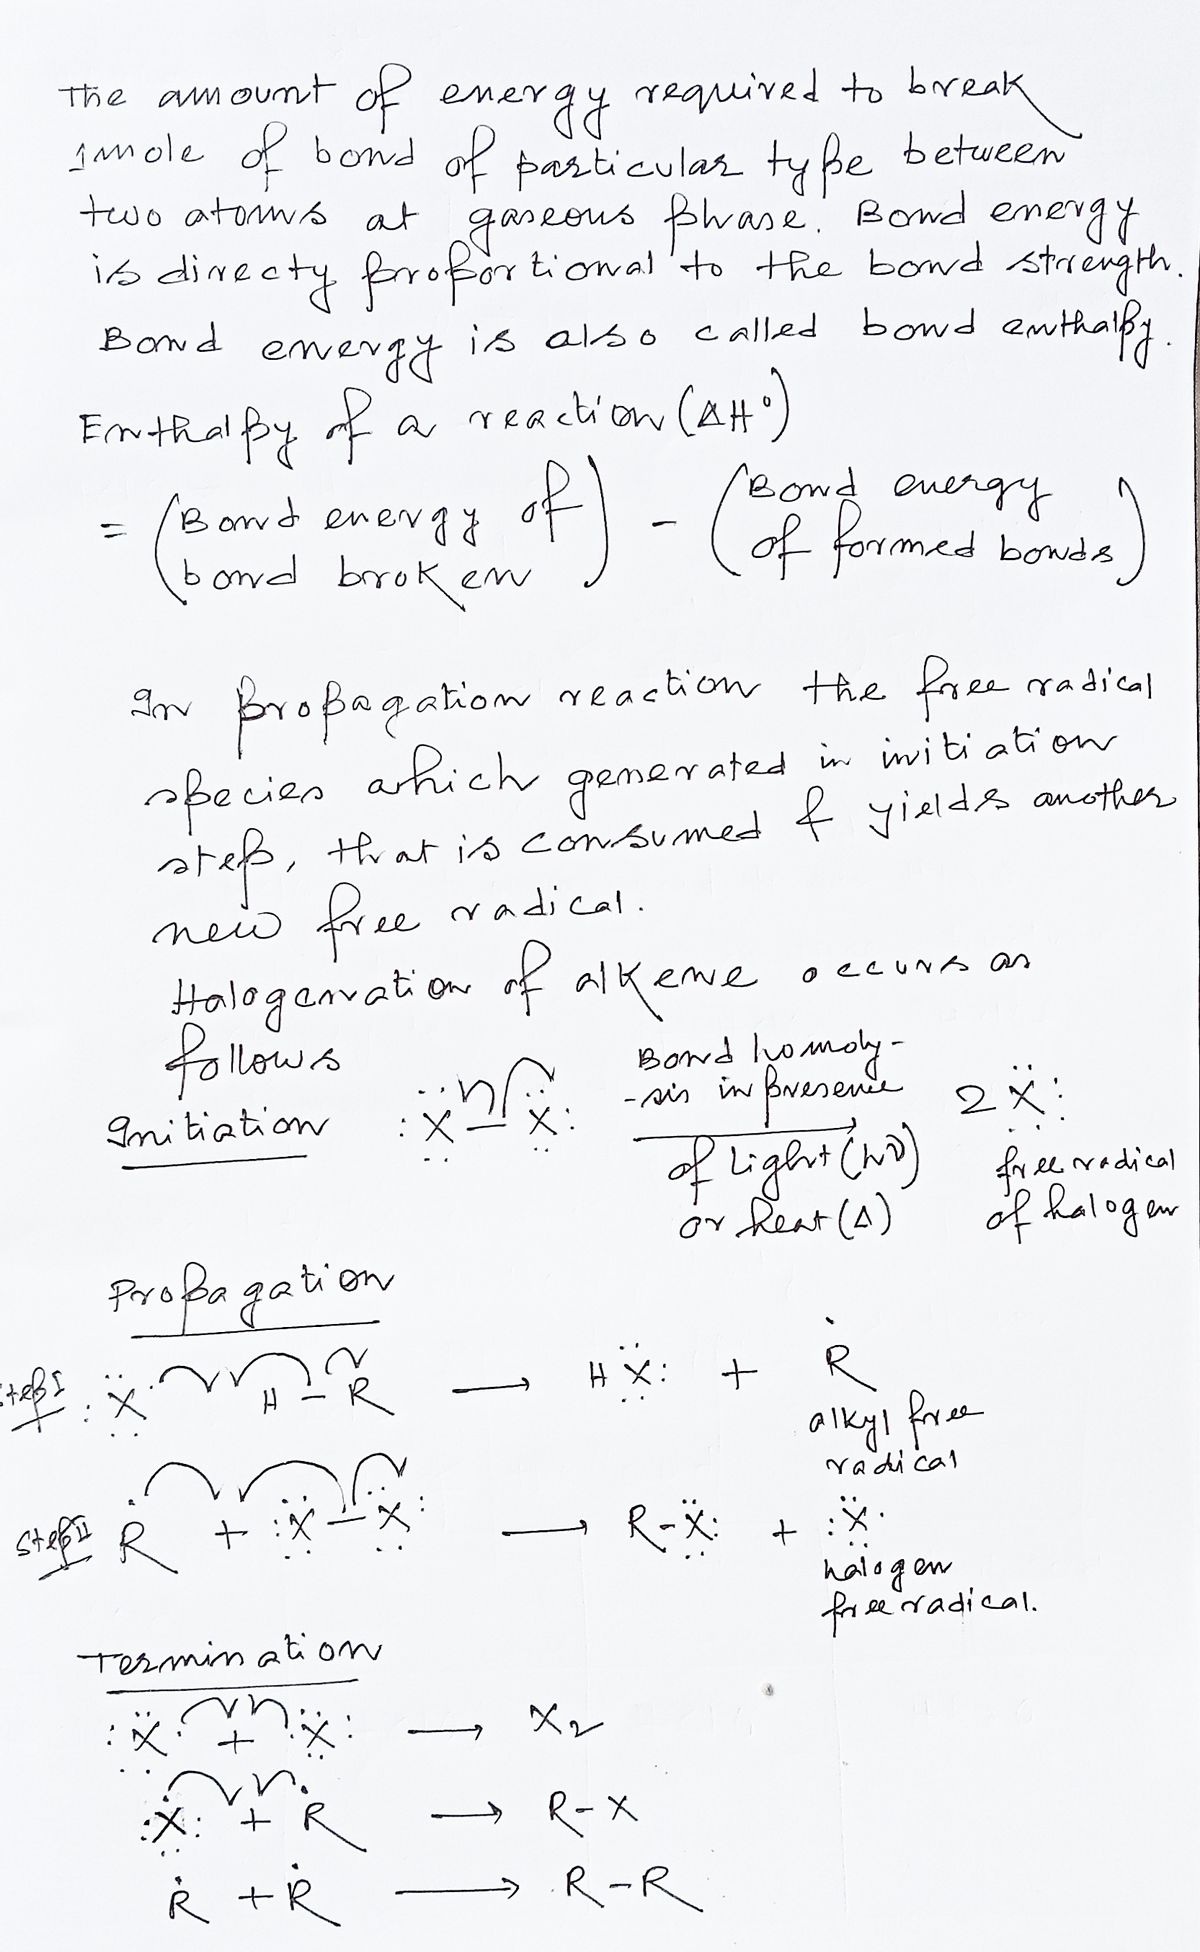 The amount of energy required to break
1 mole of bond of particular type between
two atoms at gaseous phase. Bond energy
is directy proportional to the bond strength.
Bond energy is also called bond enthalpy.
Enthalpy of a reaction (ΔH°)
= (Bond energy of bond broken) - (Bond energy of formed bonds)
In propagation reaction the free radical
species which generated in initiation
step, that is consumed & yields another
new free radical.
Halogenation of alkene occurs as
follows
Initiation :Ẍ - Ẍ: Bond homoly-
-sis in presence
of light (hν)
or heat (Δ)
2 Ẍ:
free radical
of halogen
Propagation
Step I :Ẍ· H - R → HẌ: + Ṙ
alkyl free
radical
Step II Ṙ + :Ẍ - Ẍ: → R-Ẍ: + :Ẍ·
halogen
free radical.
Termination
:Ẍ· + ·Ẍ: → X₂
:Ẋ: + Ṙ → R-X
Ṙ + Ṙ → R-R